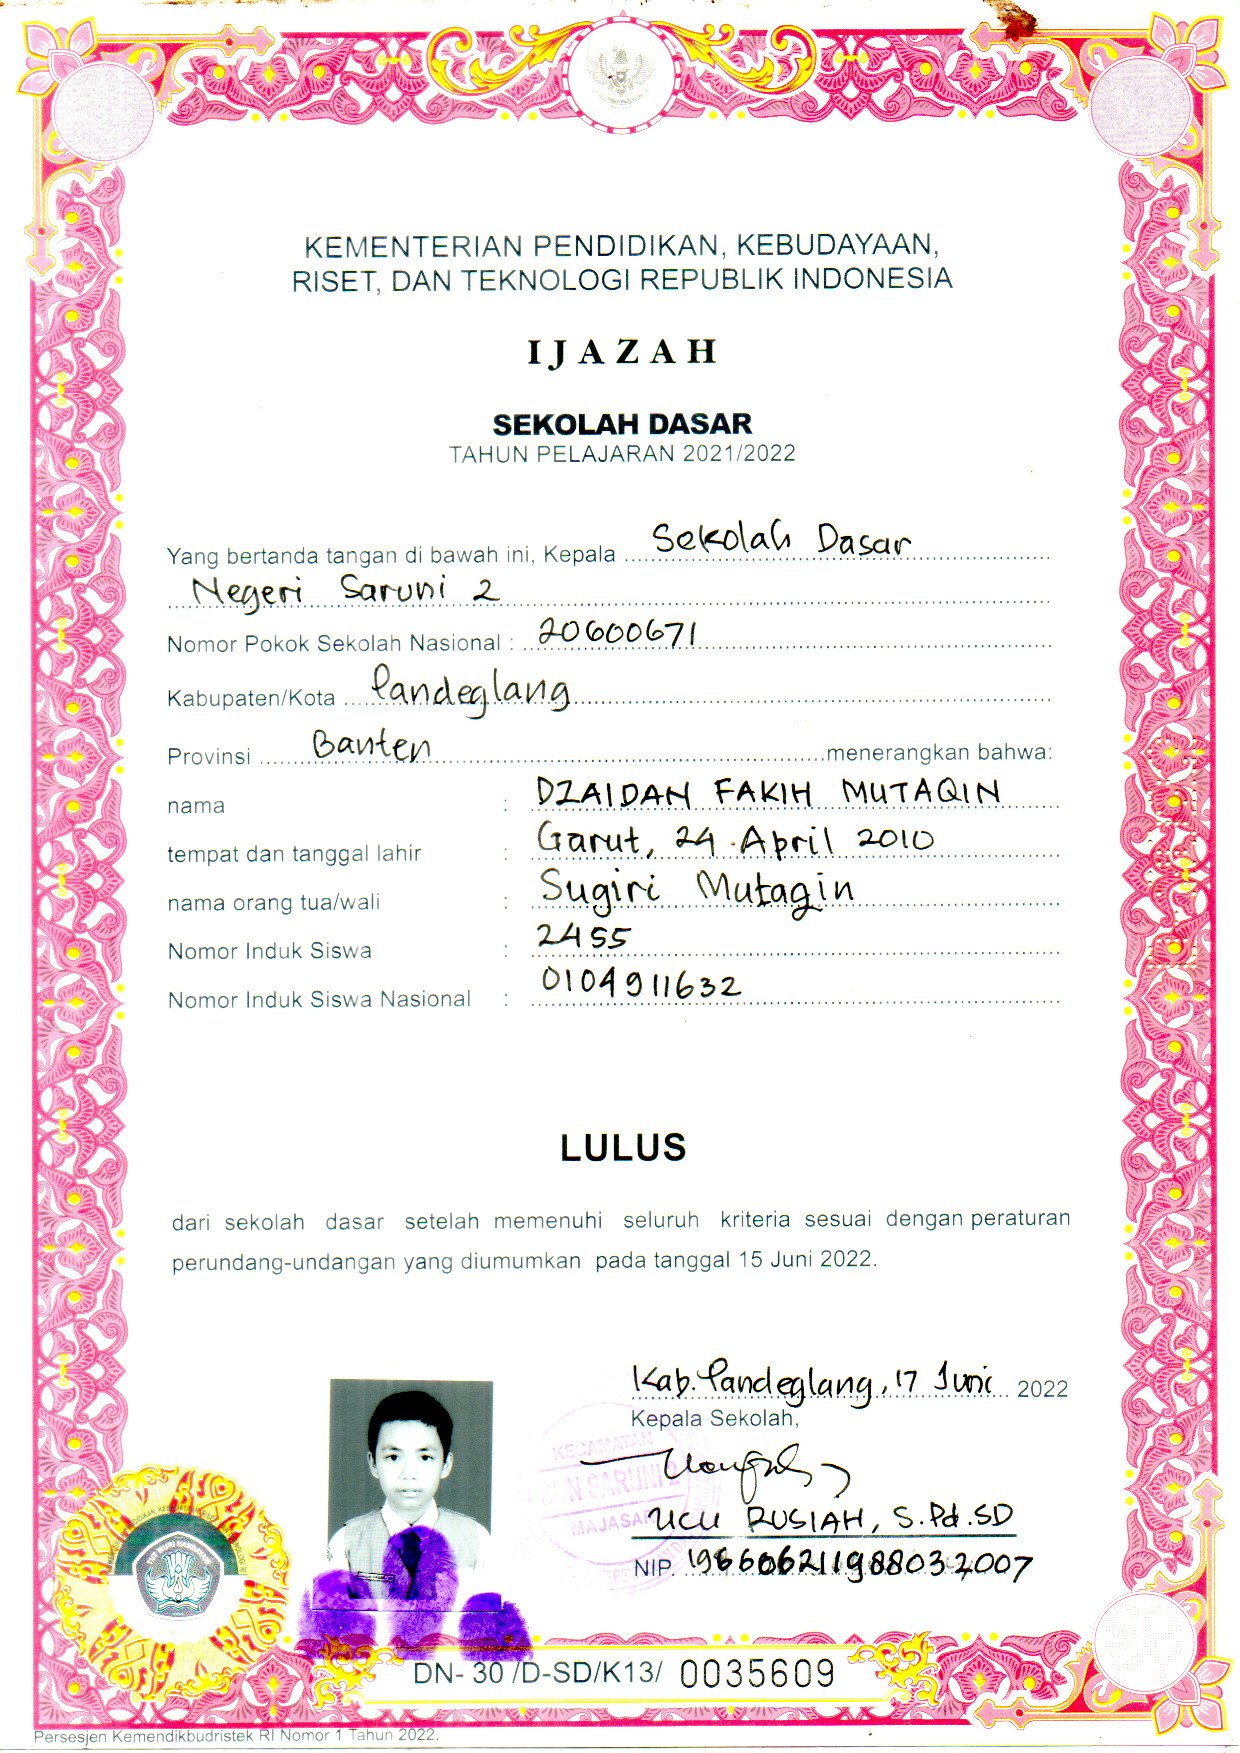 KEMENTERIAN PENDIDIKAN, KEBUDAYAAN,
RISET, DAN TEKNOLOGI REPUBLIK INDONESIA
IJAZAH
SEKOLAH DASAR
TAHUN PELAJARAN 2021/2022
Yang bertanda tangan di bawah ini, Kepala Sekolah Dasar
Negeri Saruni 2
Nomor Pokok Sekolah Nasional : 20600671
Kabupaten/Kota Pandeglang
Provinsi Banten menerangkan bahwa:
nama : DZAIDAN FAKIH MUTAQIN
tempat dan tanggal lahir : Garut, 24 April 2010
nama orang tua/wali : Sugiri Mutaqin
Nomor Induk Siswa : 2455
Nomor Induk Siswa Nasional : 0104911632
LULUS
dari sekolah dasar setelah memenuhi seluruh kriteria sesuai dengan peraturan
perundang-undangan yang diumumkan pada tanggal 15 Juni 2022.
Kab. Pandeglang, 17 Juni 2022
Kepala Sekolah,
KECAMATAN
SARUNI 2
UCU RUSIAH, S.Pd.SD
NIP. 196606211988032007
TUT WURI HANDAYANI
DN- 30 /D-SD/K13/ 0035609
Persesjen Kemendikbudristek RI Nomor 1 Tahun 2022.